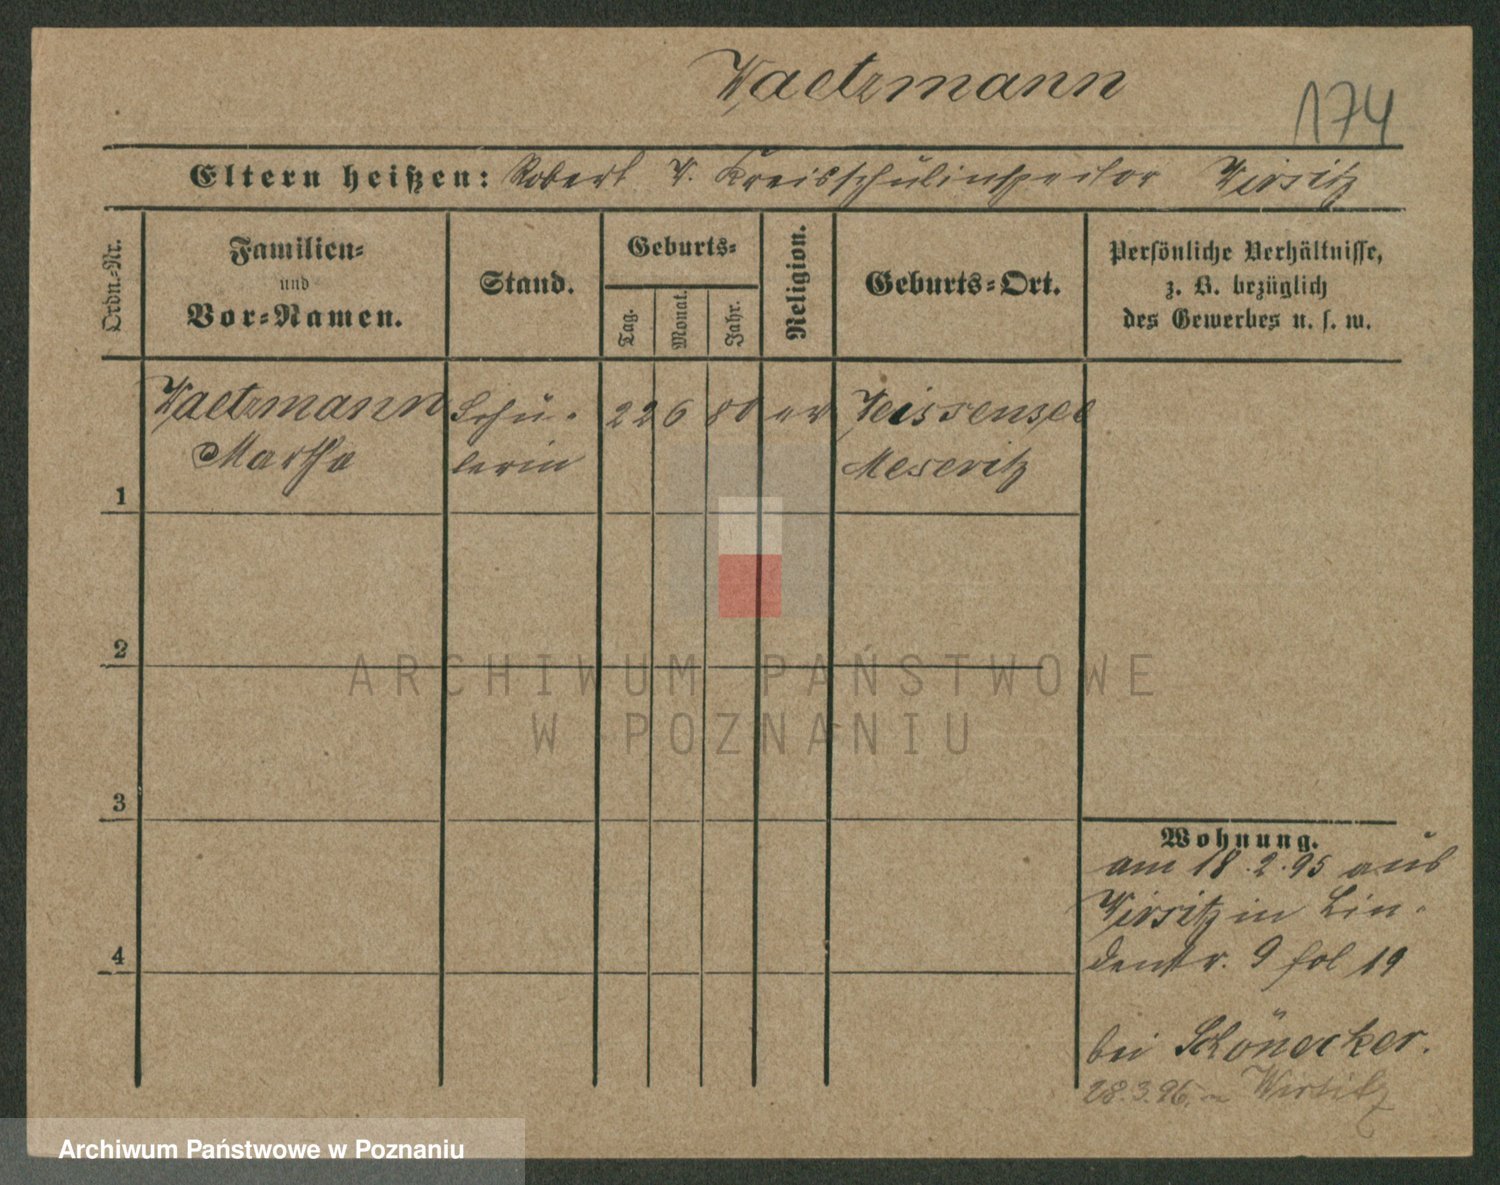 Waetzmann
174
Eltern heißen: Robert W. Kreisschulinspektor Wirsitz
Ordn.-Nr.
Familien-
und
Vor-Namen.
Stand.
Geburts-
Tag.
Monat.
Jahr.
Religion.
Geburts-Ort.
Persönliche Verhältnisse,
z. B. bezüglich
des Gewerbes u. s. w.
Waetzmann Schü- 22 6 80 ev Weissensee
Martha lerin Meseritz
1
2
3
4
Wohnung.
am 18.2.95 aus
Wirsitz in Lin-
denstr. 9 fol 19
bei Schönecker.
28.3.96. n Wirsitz
ARCHIWUM PAŃSTWOWE
W POZNANIU
Archiwum Państwowe w Poznaniu